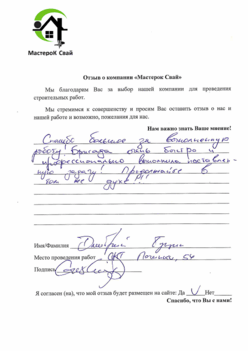 МастероК Свай
Отзыв о компании «Мастерок Свай»
Мы благодарим Вас за выбор нашей компании для проведения
строительных работ.
Мы стремимся к совершенству и просим Вас оставить отзыв о нас и
нашей работе и возможно, пожелания для нас.
Нам важно знать Ваше мнение!
Спасибо большое за выполненную
работу. Бригада очень быстро и
профессионально выполнила поставлен-
ную задачу! Продолжайте в
том же духе!!!
Имя/Фамилия Дмитрий
Место проведения работ СНТ 54
Подпись
Я согласен (на), что мой отзыв будет размещен на сайте: Да V Нет
Спасибо, что Вы с нами!